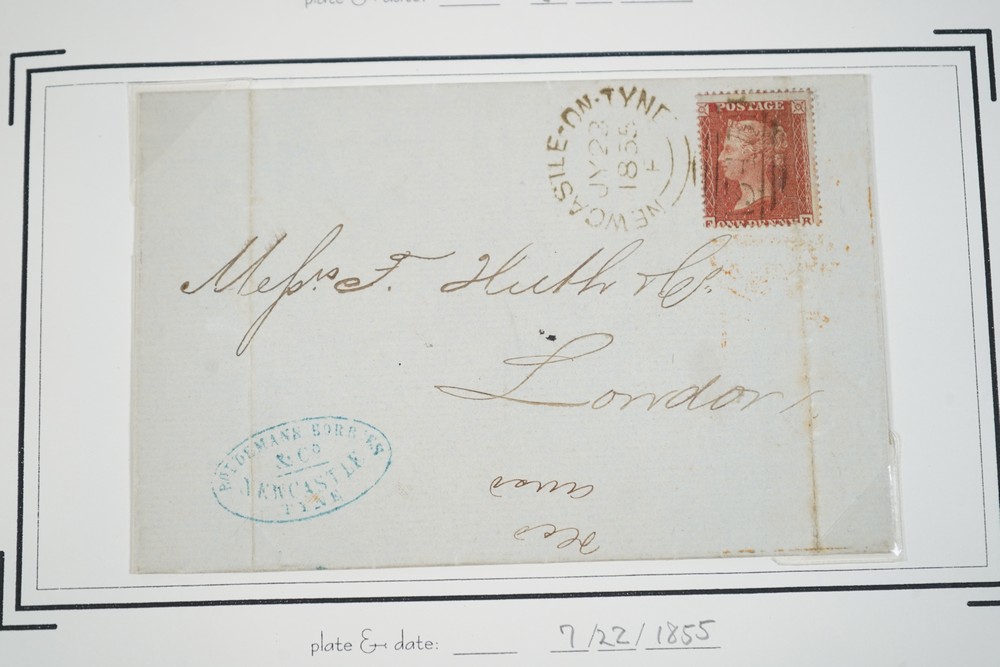 plate & date:
NEWCASTLE-ON-TYNE
JY 23
1855
F
POSTAGE
ONE PENNY R
Messrs. F. Huth & Co.
London
& Co
NEWCASTLE
TYNE
plate & date: 7/22/1855